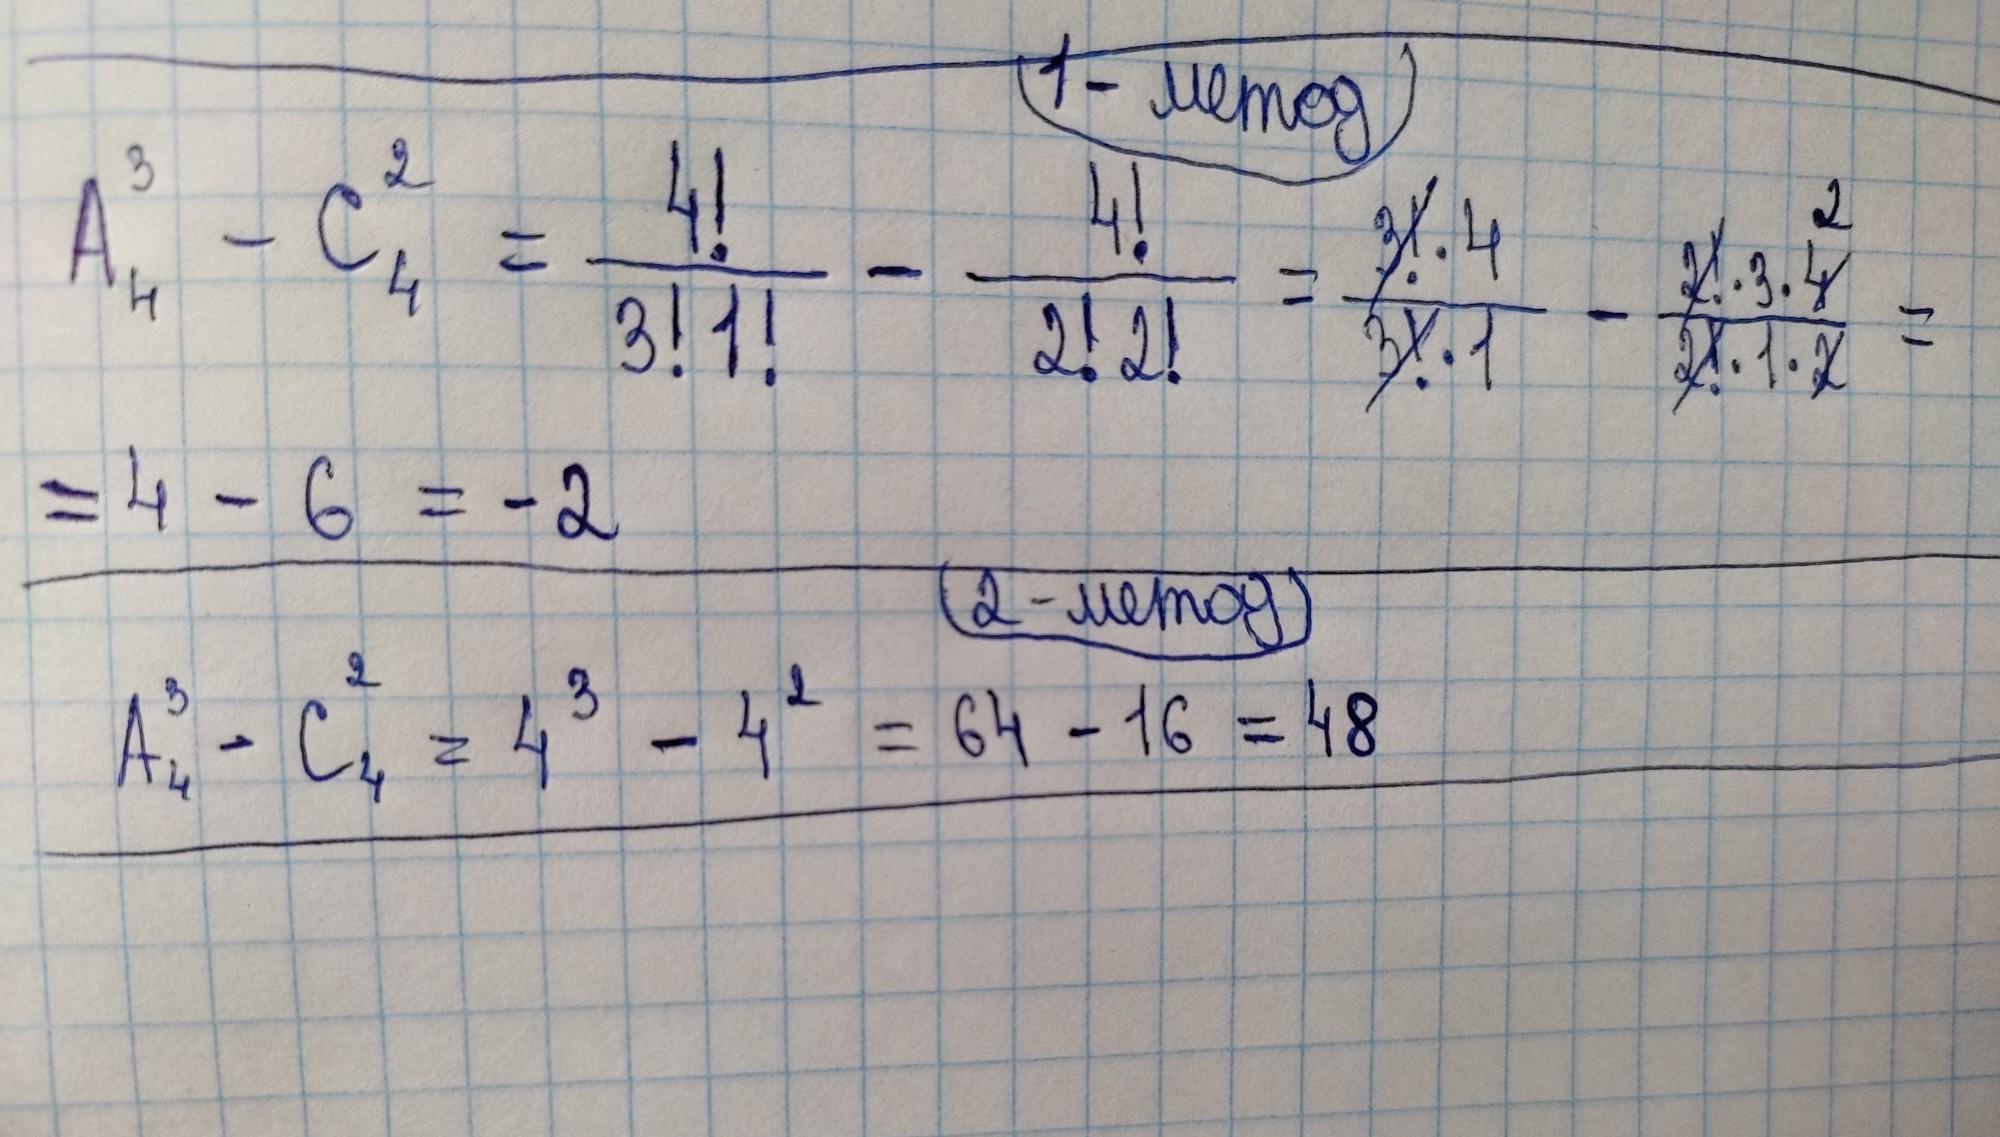 1 - метод
A₄³ - C₄² = 4!/(3! 1!) - 4!/(2! 2!) = (3! · 4)/(3! · 1) - (2! · 3 · 4 2)/(2! · 1 · 2) =
= 4 - 6 = -2
2 - метод
A₄³ - C₄² = 4³ - 4² = 64 - 16 = 48